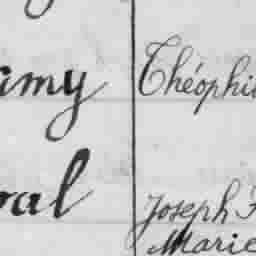 amy Théophi
al Joseph
Marie